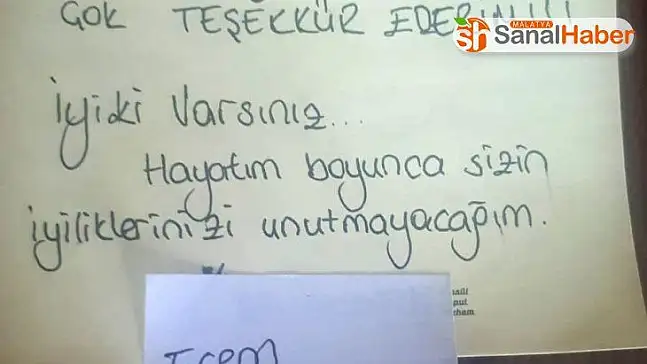 ÇOK TEŞEKKÜR EDERİM!!!
MALATYA
SanalHaber
İyiki Varsınız...
Hayatım boyunca sizin
iyiliklerinizi unutmayacağım.